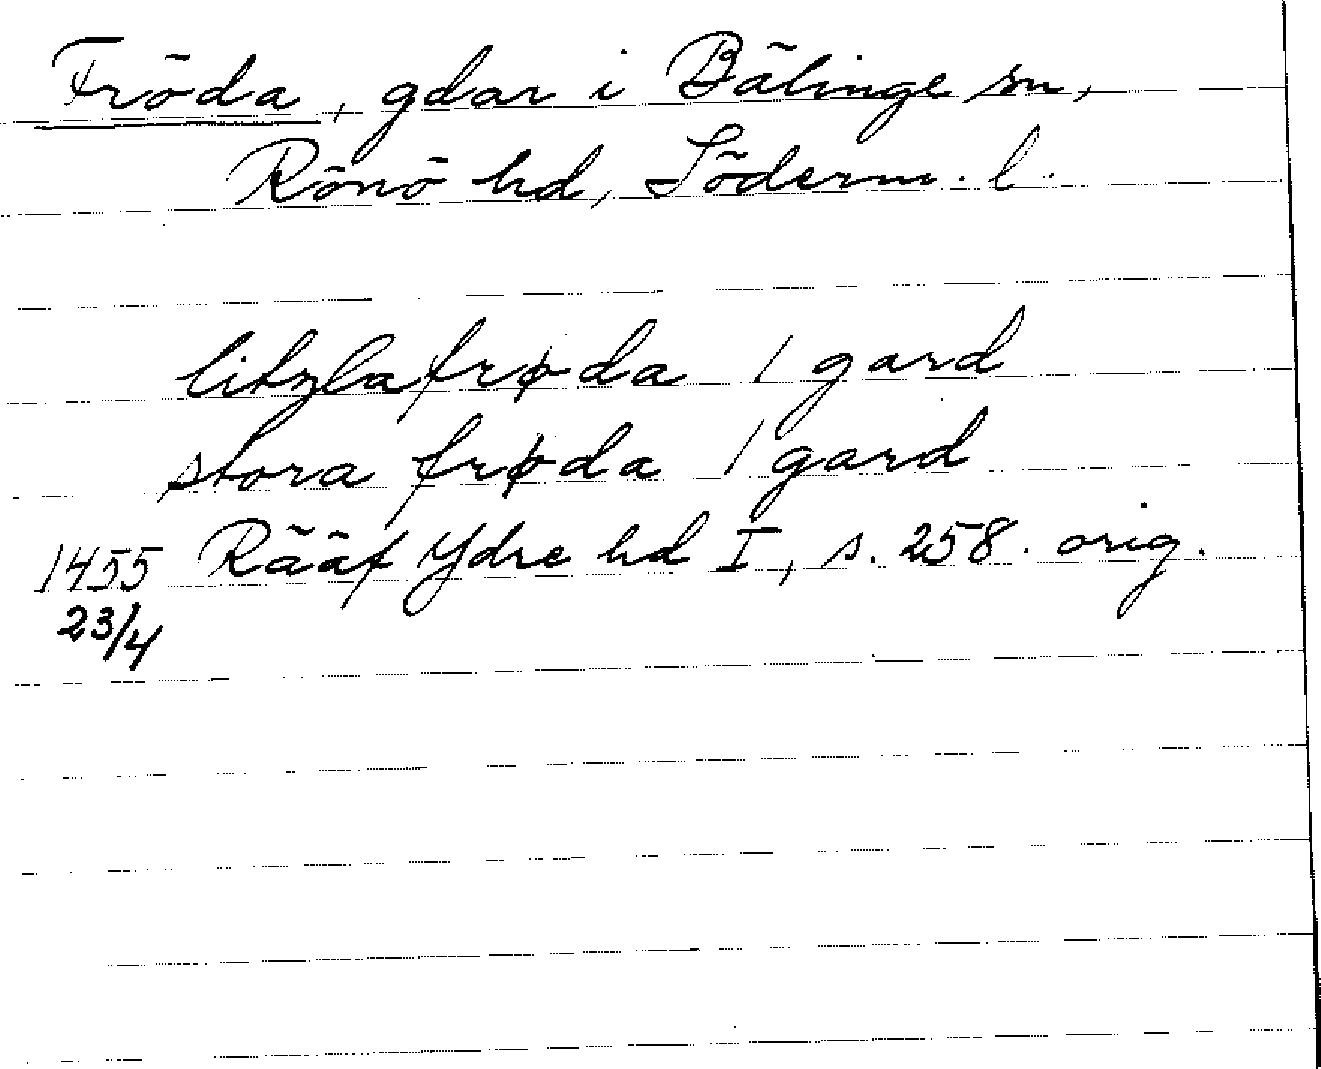 Fröda, gdar i Bälinge sn,
Rönö hd, Söderm. l.
litzla frøda 1 gard
stora frøda 1 gard
1455 Rääf Ydre hd I, s. 258. orig.
23/4